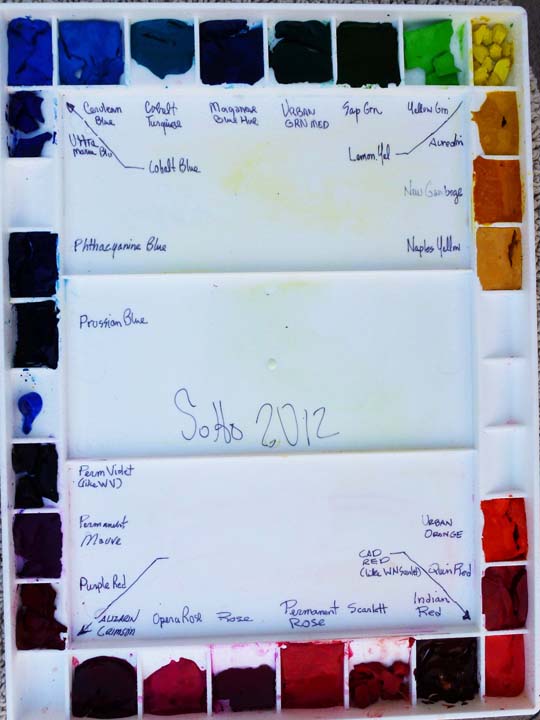 Cerulean
Blue
Cobalt
Turquise
Manganese
Blue Hue
URBAN
GRN MED
Sap Grn
Yellow Grn
Ultra
Marine Blu
Cobalt Blue
Lemon Yel
Aureolin
New Gamboge
Phthacyanine Blue
Naples Yellow
Prussian Blue
SoHo 2012
Perm Violet
(like WV)
Permanent
Mauve
URBAN
ORANGE
CAD
RED
(Like WN Scarlet)
Quin Red
Purple Red
Indian
Red
ALIZARIN
CRIMSON
Opera Rose
Rose
Permanent
Rose
Scarlett